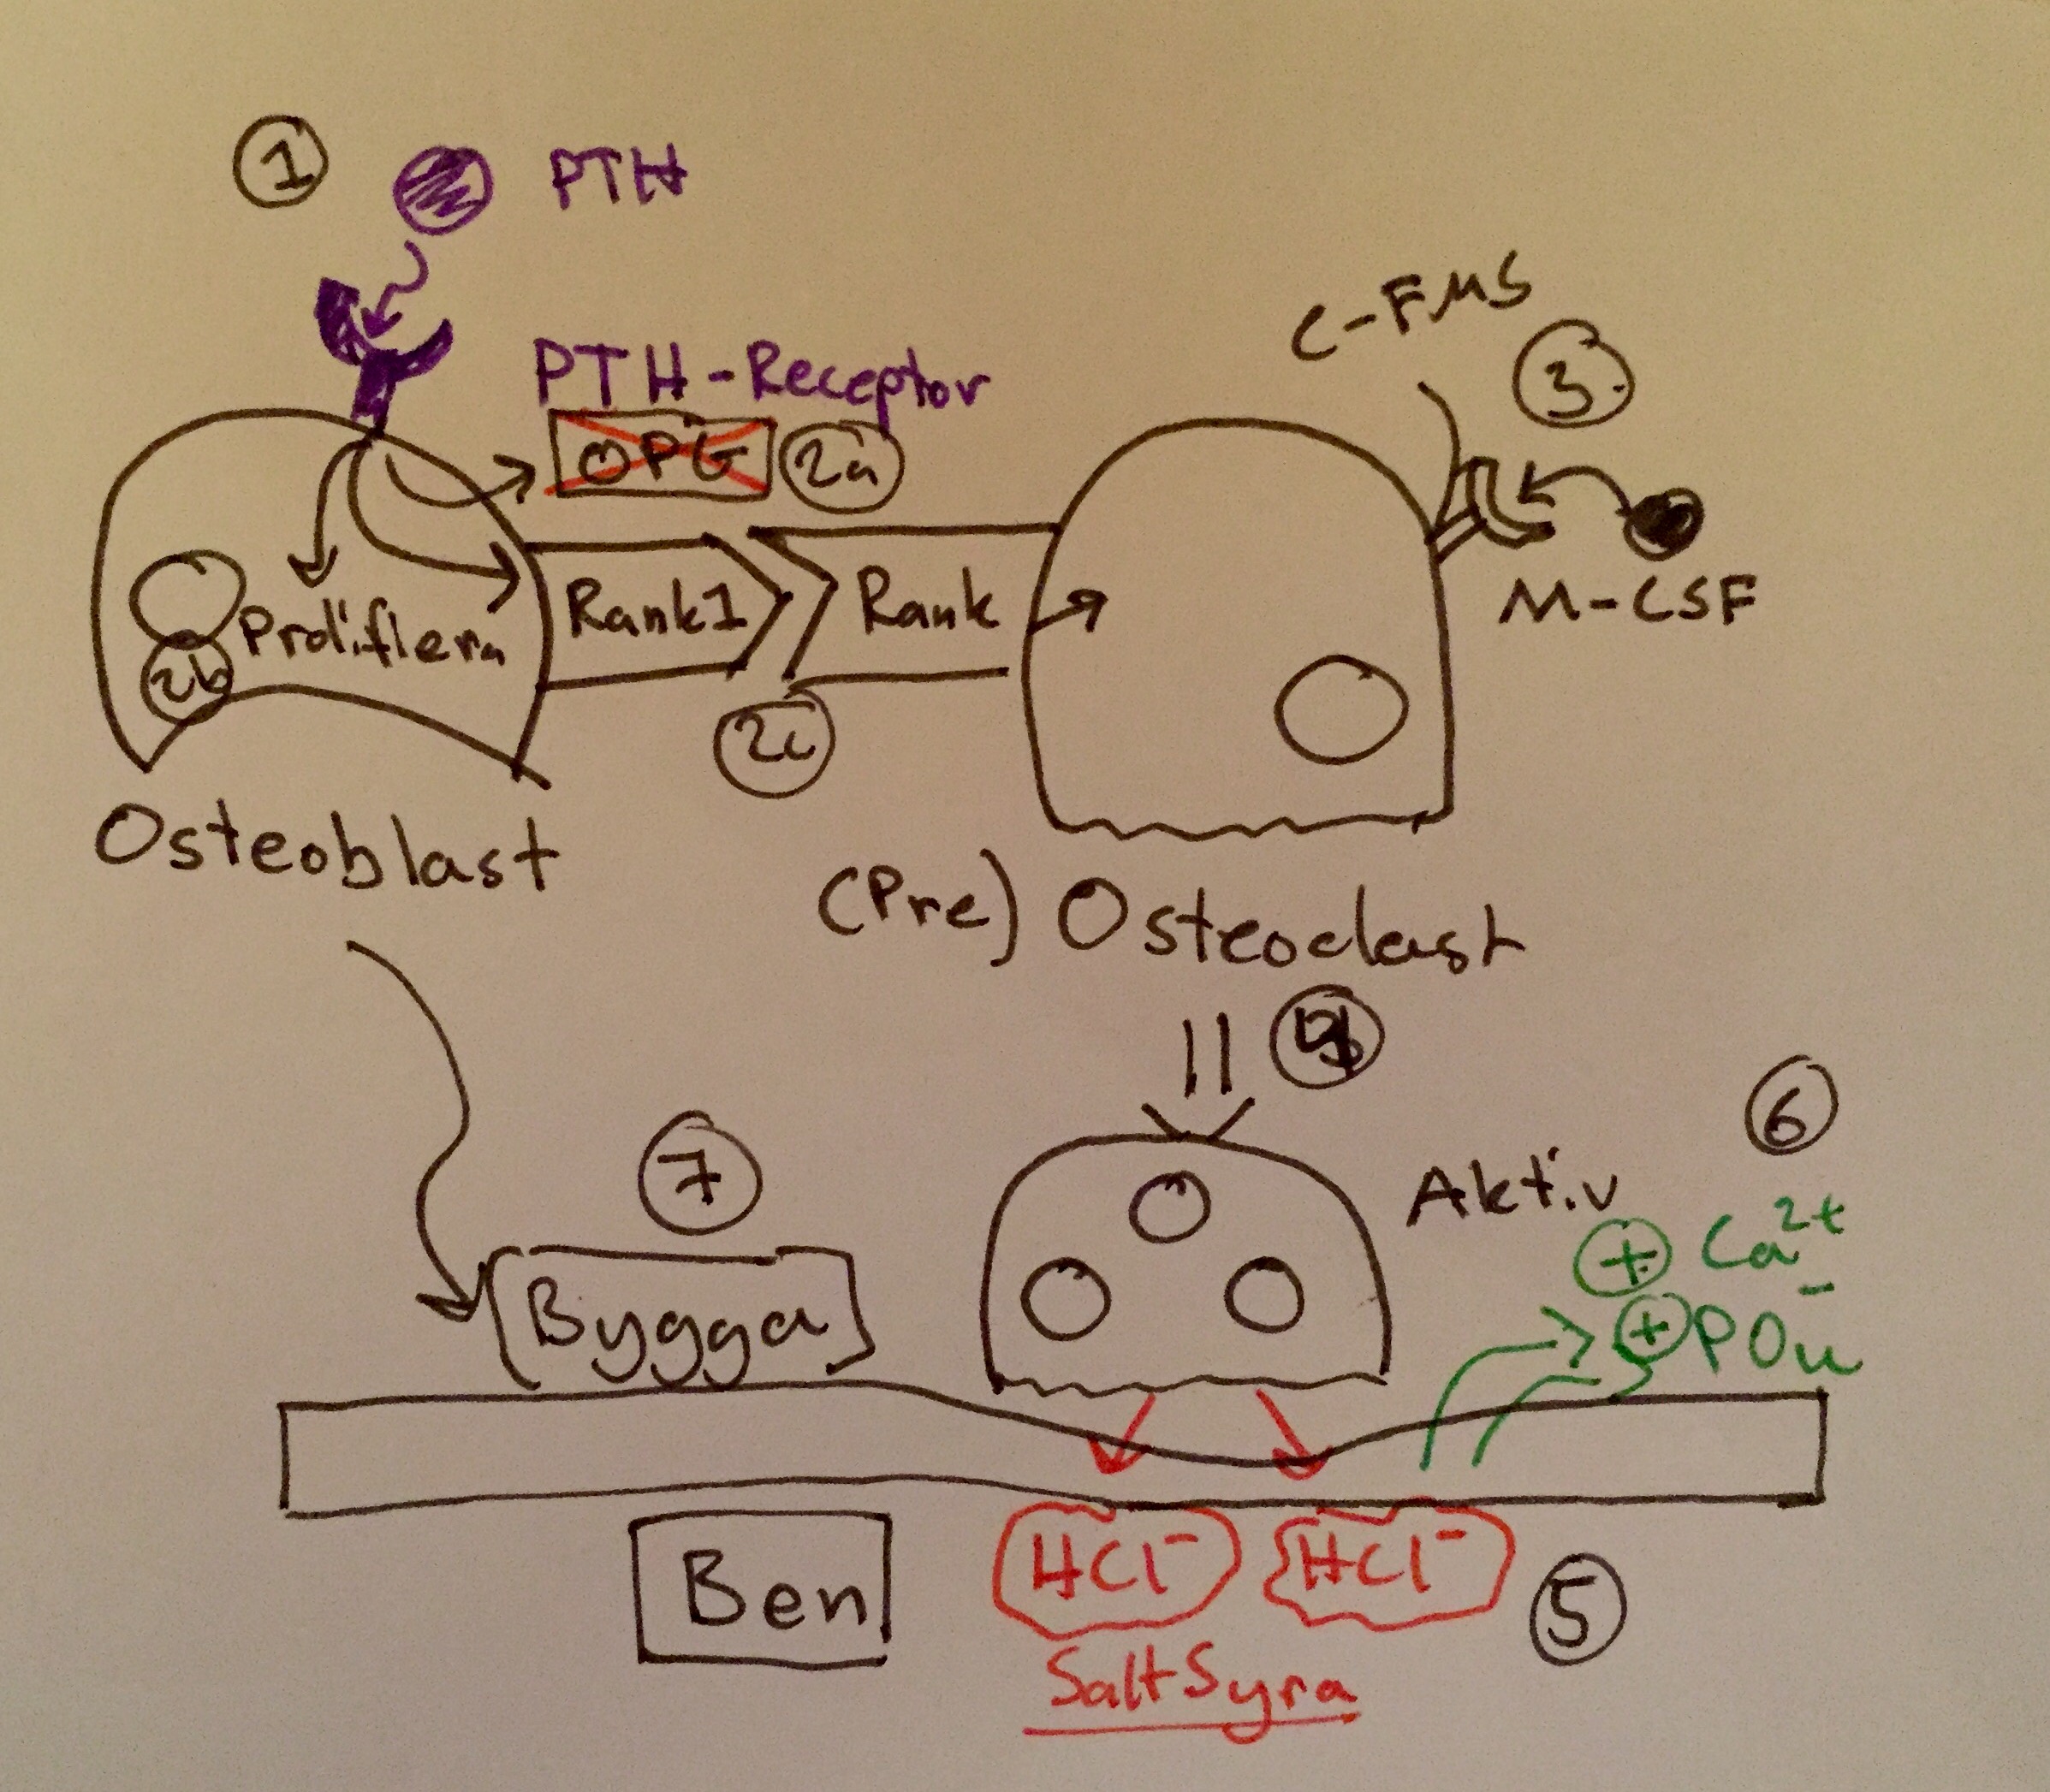 1
PTH
C-FMS
3
PTH-Receptor
OPG
2a
Rank1
Rank
M-CSF
Prolifiera
2b
2c
Osteoblast
(Pre) Osteoclast
4
6
7
Aktiv
+ Ca2+
+ PO4-
Bygga
Ben
HCl-
HCl-
5
SaltSyra